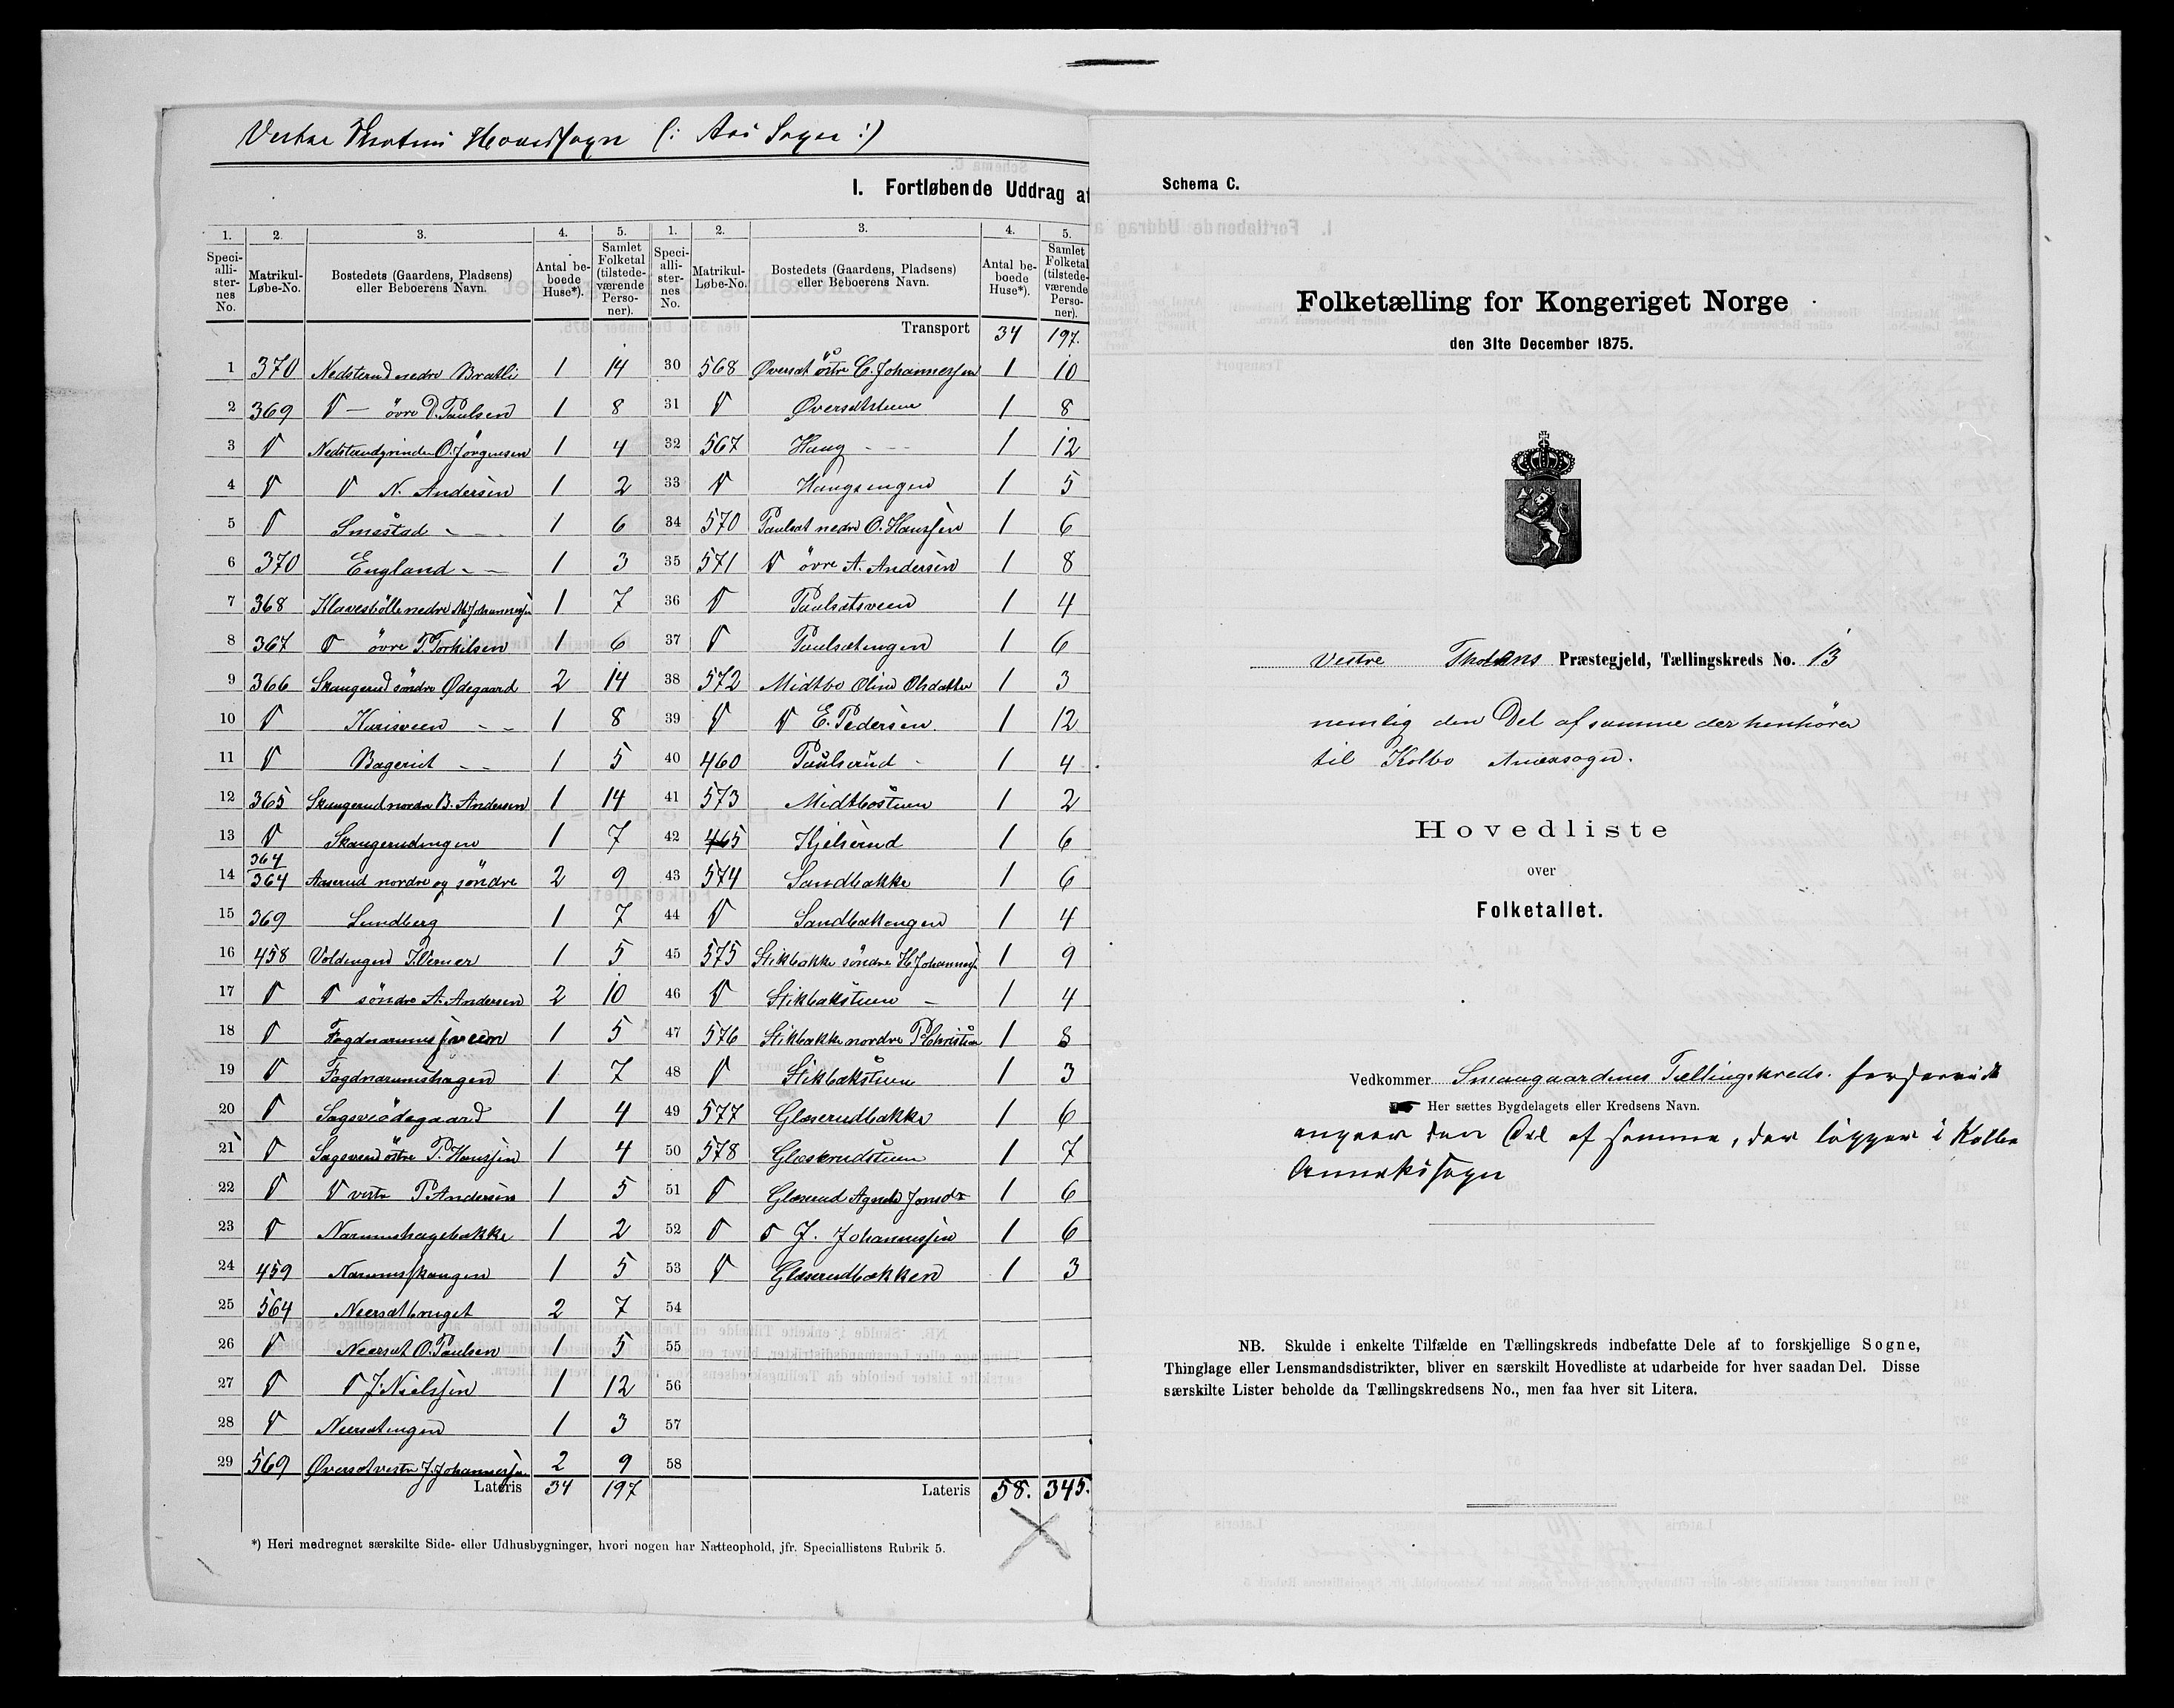 Vestre Thotens Hovedsogn (: Aas Sogn :)
I. Fortløbende Uddrag af
1. 2. 3. 4. 5. 1. 2. 3. 4. 5.
Specialli-sternes No. Matrikul-Løbe-No. Bostedets (Gaardens, Pladsens) eller Beboerens Navn. Antal beboede Huse*). Samlet Folketal (tilstedeværende Personer). Speciallisternes No. Matrikul-Løbe-No. Bostedets (Gaardens, Pladsens) eller Beboerens Navn. Antal beboede Huse*). Samlet Folketal (tilstedeværende Personer).
Transport 34 197.
1 370 Nedsterud nedre Bratli 1 14
2 369 D — övre D. Paulsen 1 8
3 D Nedsterudgrinden O. Jörgensen 1 4
4 D D N. Andersen 1 2
5 D Smestad 1 6
6 370 England 1 3
7 368 Klavesbölle nedre M. Johannessen 1 7
8 367 D övre P. Torkilsen 1 6
9 366 Skaugerud söndre Ødegaard 2 14
10 D Kurisveen 1 8
11 D Bagerud 1 5
12 365 Skaugerud nordre B. Andersen 1 14
13 D Skaugerudengen 1 7
14 364 364 Aaserud nordre og söndre 2 9
15 369 Lundberg 1 7
16 458 Voldengen I. Verner 1 5
17 D D söndre A. Andersen 2 10
18 D Fogdnarumsveen 1 5
19 D Fogdnarumshagen 1 7
20 D Sagsveödegaard 1 4
21 D Sagsveen östre P. Hanssen 1 4
22 D D vestre P. Andersen 1 5
23 D Narumshagebakke 1 2
24 459 Narumsskaugen 1 5
25 564 Neersætbruget 2 7
26 D Neersæt O. Paulsen 1 5
27 D D J. Nielssen 1 12
28 D Neersætengen 1 3
29 569 Øversæt vestre J. Johannessen 2 9
Lateris 34 197
30 568 Øversæt östre C. Johannessen 1 10
31 D Øversætstuen 1 8
32 567 Haug 1 12
33 D Haugsengen 1 5
34 570 Paulsæt nedre O. Hanssen 1 6
35 571 D övre A. Andersen 1 8
36 D Paulsætsveen 1 4
37 D Paulsætengen 1 6
38 572 Midtbo Oline Olsdatter 1 3
39 D D E. Pedersen. 1 12
40 460 Paulserud 1 4
41 573 Midtbostuen 1 2
42 465 Kjelserud 1 6
43 574 Sandbakke 1 6
44 D Sandbakkengen 1 4
45 575 Stikbakke söndre H. Johannessen 1 9
46 D Stikbakstuen 1 4
47 576 Stikbakke nordre P. Christian 1 8
48 D Stikbakstuen 1 3
49 577 Glæserudbakke 1 6
50 578 Glæserudstuen 1 7
51 D Glæserud Agnete Jonsdr 1 6
52 D D J. Johannessen 1 6
53 D Glæserudbakken 1 3
54
55
56
57
58
Lateris 58. 345.
*) Heri medregnet særskilte Side- eller Udhusbygninger, hvori nogen har Natteophold, jfr. Speciallistens Rubrik 5.
Schema C.
Folketælling for Kongeriget Norge
den 31te December 1875.
Vestre Thotens Præstegjeld, Tællingskreds No. 13
nemlig den Del af samme der henhörer
til Kolbo Anexsogn.
Hovedliste
over
Folketallet.
Vedkommer Smaagaardenes Tællingskreds. forsaavidt
Her sættes Bygdelagets eller Kredsens Navn.
angaar den Del af samme, der ligger i Kolbo
Annekssogn
NB. Skulde i enkelte Tilfælde en Tællingskreds indbefatte Dele af to forskjellige Sogne,
Thinglage eller Lensmandsdistrikter, bliver en særskilt Hovedliste at udarbeide for hver saadan Del. Disse
særskilte Lister beholde da Tællingskredsens No., men faa hver sit Litera.